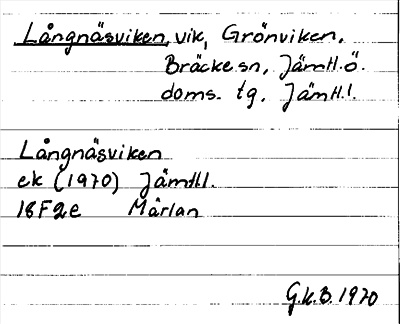 Långnäsviken, vik, Grönviken,
Bräcke sn, Jämtl. ö.
doms. tg, Jämtl.
Långnäsviken
ek (1970) Jämtl.
18F2e Mårlan
G.k.B. 1970